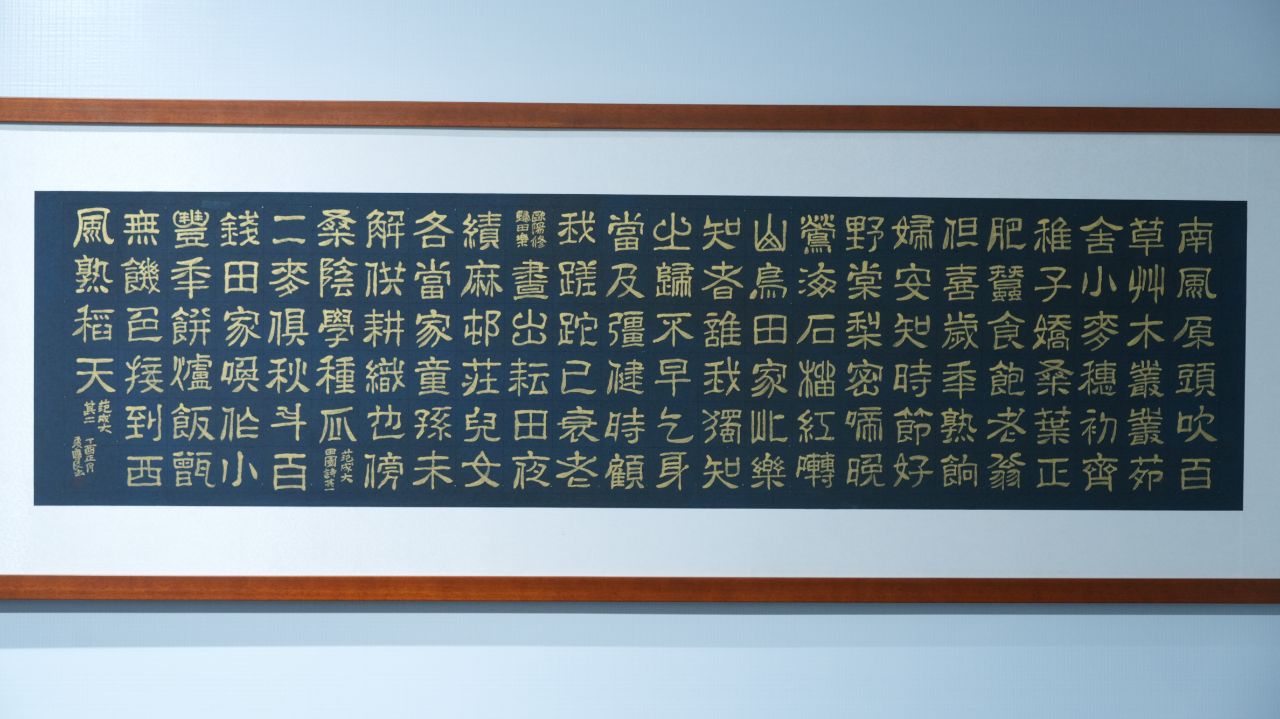 南風原頭吹百
草艸木叢叢茆
舍小麥穗初齊
稚子嬌桑葉正
肥蠶食飽老翁
但喜歲秊熟餉
婦安知時節好
野棠梨密啼晚
鶯海石榴紅囀
山鳥田家此樂
知者誰我獨知
之歸不早乞身
當及彊健時顧
我蹉跎已衰老
歐陽修
歸田樂
晝出耘田夜
績麻邨莊兒女
各當家童孫未
解供耕織也傍
桑陰學種瓜
范成大
田園詩其一
二麥俱秋斗百
錢田家喚作小
豐秊餅爐飯甑
無饑色接到西
風熟稻天
范成大
其二
丁酉正月